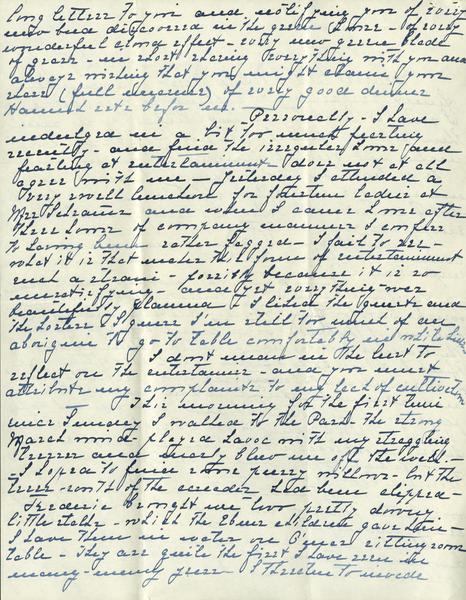 long letters to you and notifying you of every
new bud discovered in the green house - of every
wonderful cloud effect - every new green blade
of grass - in short sharing everything with you and
always wishing that you might claim your
share (full measure) of every good dinner
Hannah sets before me. -
Personally - I have
indulged in a bit too much feasting
recently - and find the irregular hours (and
feasting at entertainments does not at all
agree with me - Yesterday I attended a
very swell luncheon for fourteen ladies at
Mrs and when I came home after
three hours of company manners I confess
to having been rather fagged - I fail to see -
what it is that makes this form of entertainment
such a strain - possibly because it is so
- and yet everything was
beautifully planned & I liked the guests and
the hostess I guess I'm still too much of an
aborigine to go to table comfortably and not to
I don't mean in the least to
reflect on the entertainer - and you must
attribute my complaints to my lack of cultivation
- This morning for the first time
since Sunday I walked to the Park the strong
March wind played havoc with my straggling
tresses and nearly blew me off the
- I hoped to find some pussy willows - but the
trees south of the cascades had been clipped -
Frederic brought me two pretty downy
little stalks - which the Ebner children gave him -
I have them in water on sitting room
table - They are quite the first I have seen in
many - many years - I threaten to